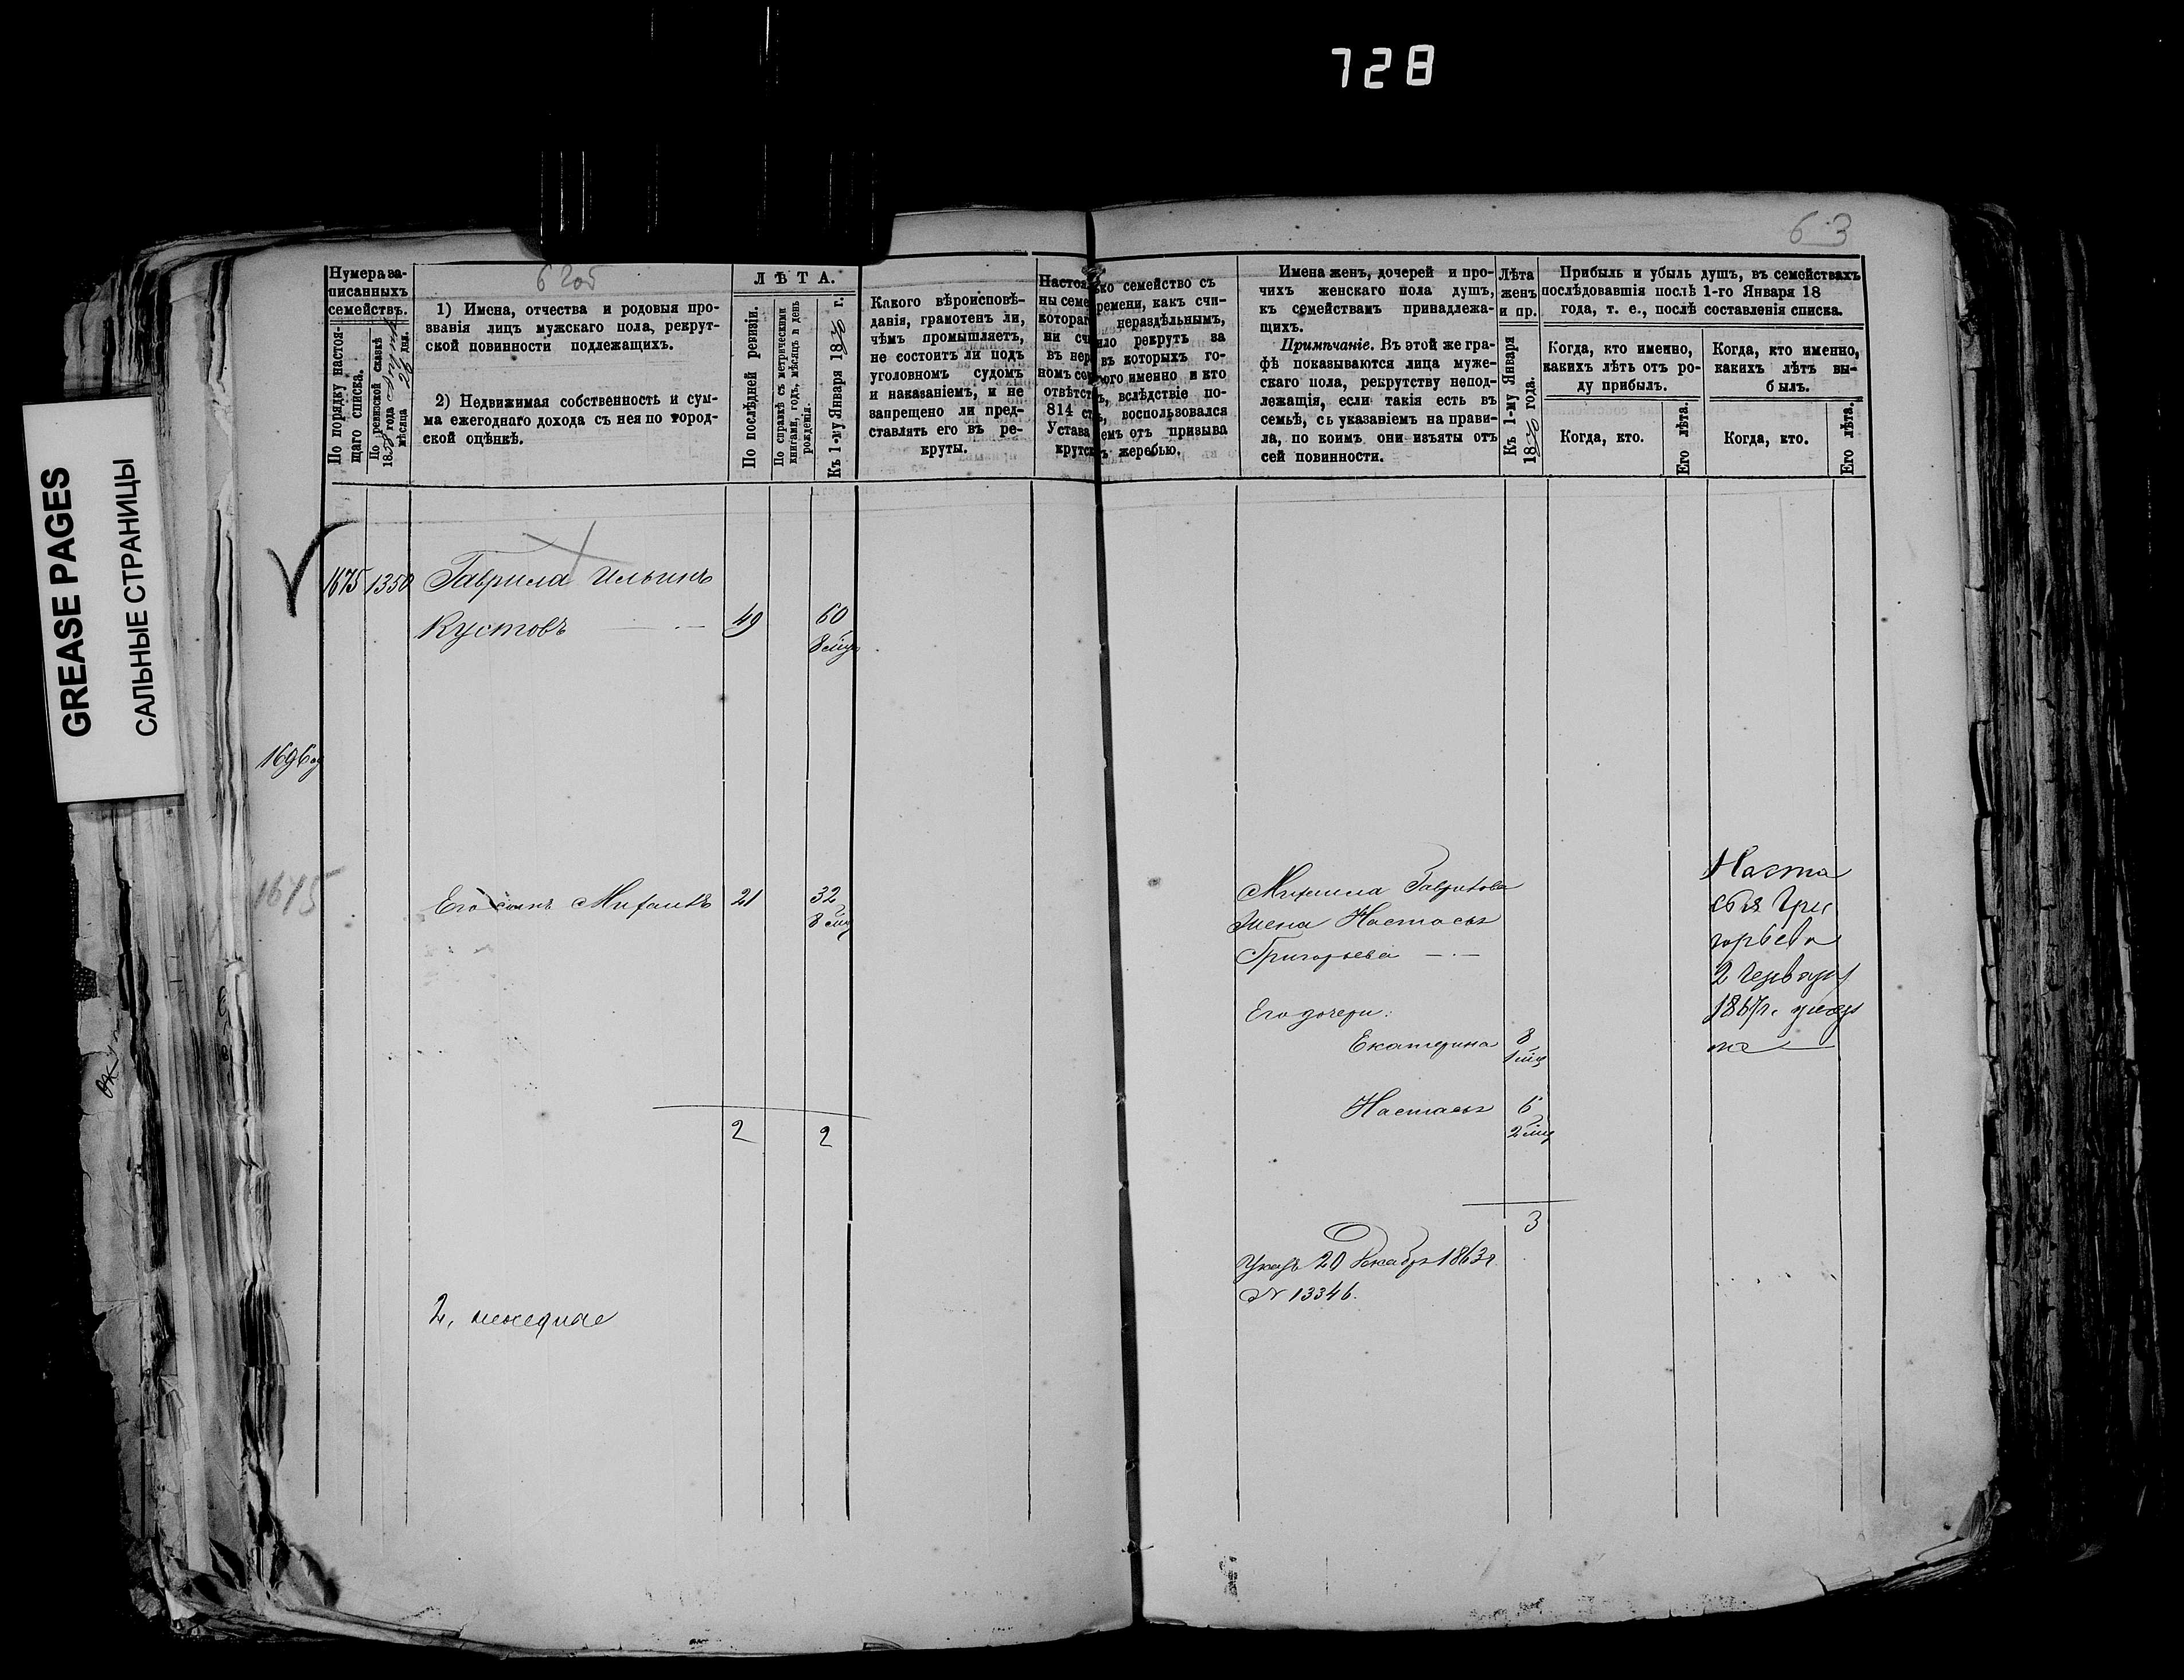 728
63
GREASE PAGES
САЛЬНЫЕ СТРАНИЦЫ
Нумера за-
писанныхъ
семействъ.
По порядку настоя-
щаго списка.
По ревизской сказкѣ
18 года
мѣсяца дня.
1) Имена, отчества и родовыя про-
званія лицъ мужскаго пола, рекрут-
ской повинности подлежащихъ.
2) Недвижимая собственность и сум-
ма ежегоднаго дохода съ нея по город-
ской оцѣнкѣ.
ЛѢТА.
По послѣдней ревизіи.
По справкѣ съ метрическими
книгами, годъ, мѣсяцъ и день
рожденія.
Къ 1-му Января 18 г.
Какого вѣроисповѣ-
данія, грамотенъ ли,
чѣмъ промышляетъ,
не состоитъ ли подъ
уголовнымъ судомъ
и наказаніемъ, и не
запрещено ли пред-
ставлять его въ ре-
круты.
Настоя
ны семе
котораг
ни сч
въ нер
номъ сем
отвѣтст
814 ст
Устава
крутск
ко семейство съ
ремени, какъ счи-
нераздѣльнымъ,
ило рекрутъ за
въ которыхъ го-
ого именно и кто
ъ, вслѣдствіе по-
, воспользовался
емъ отъ призыва
ъ жеребью.
Имена женъ, дочерей и про-
чихъ женскаго пола душъ,
къ семействамъ принадлежа-
щихъ.
Примѣчаніе. Въ этой же гра-
фѣ показываются лица муже-
скаго пола, рекрутству непод-
лежащія, если такія есть въ
семьѣ, съ указаніемъ на прави-
ла, по коимъ они изъяты отъ
сей повинности.
Лѣта
женъ
и пр.
Къ 1-му Января
18 года.
Прибыль и убыль душъ, въ семействахъ
послѣдовавшія послѣ 1-го Января 18
года, т. е., послѣ составленія списка.
Когда, кто именно,
какихъ лѣтъ отъ ро-
ду прибылъ.
Когда, кто.
Его лѣта.
Когда, кто именно,
какихъ лѣтъ вы-
былъ.
Когда, кто.
Его лѣта.
1675 1350 Гаврила Ильинъ
Кустовъ 49 60
8 мцъ
1675
Его сынъ Михаилъ 21 32
8 мц
2 2
Михаила Гаврилова
жена Настасья
Григорьева
Его дочери:
Екатерина 8
1 мц
Настасья 6
2 мц
3
Указъ 20 Декабря 1863 г.
№ 13346.
Наста
сья Гри
горьева
1867г.